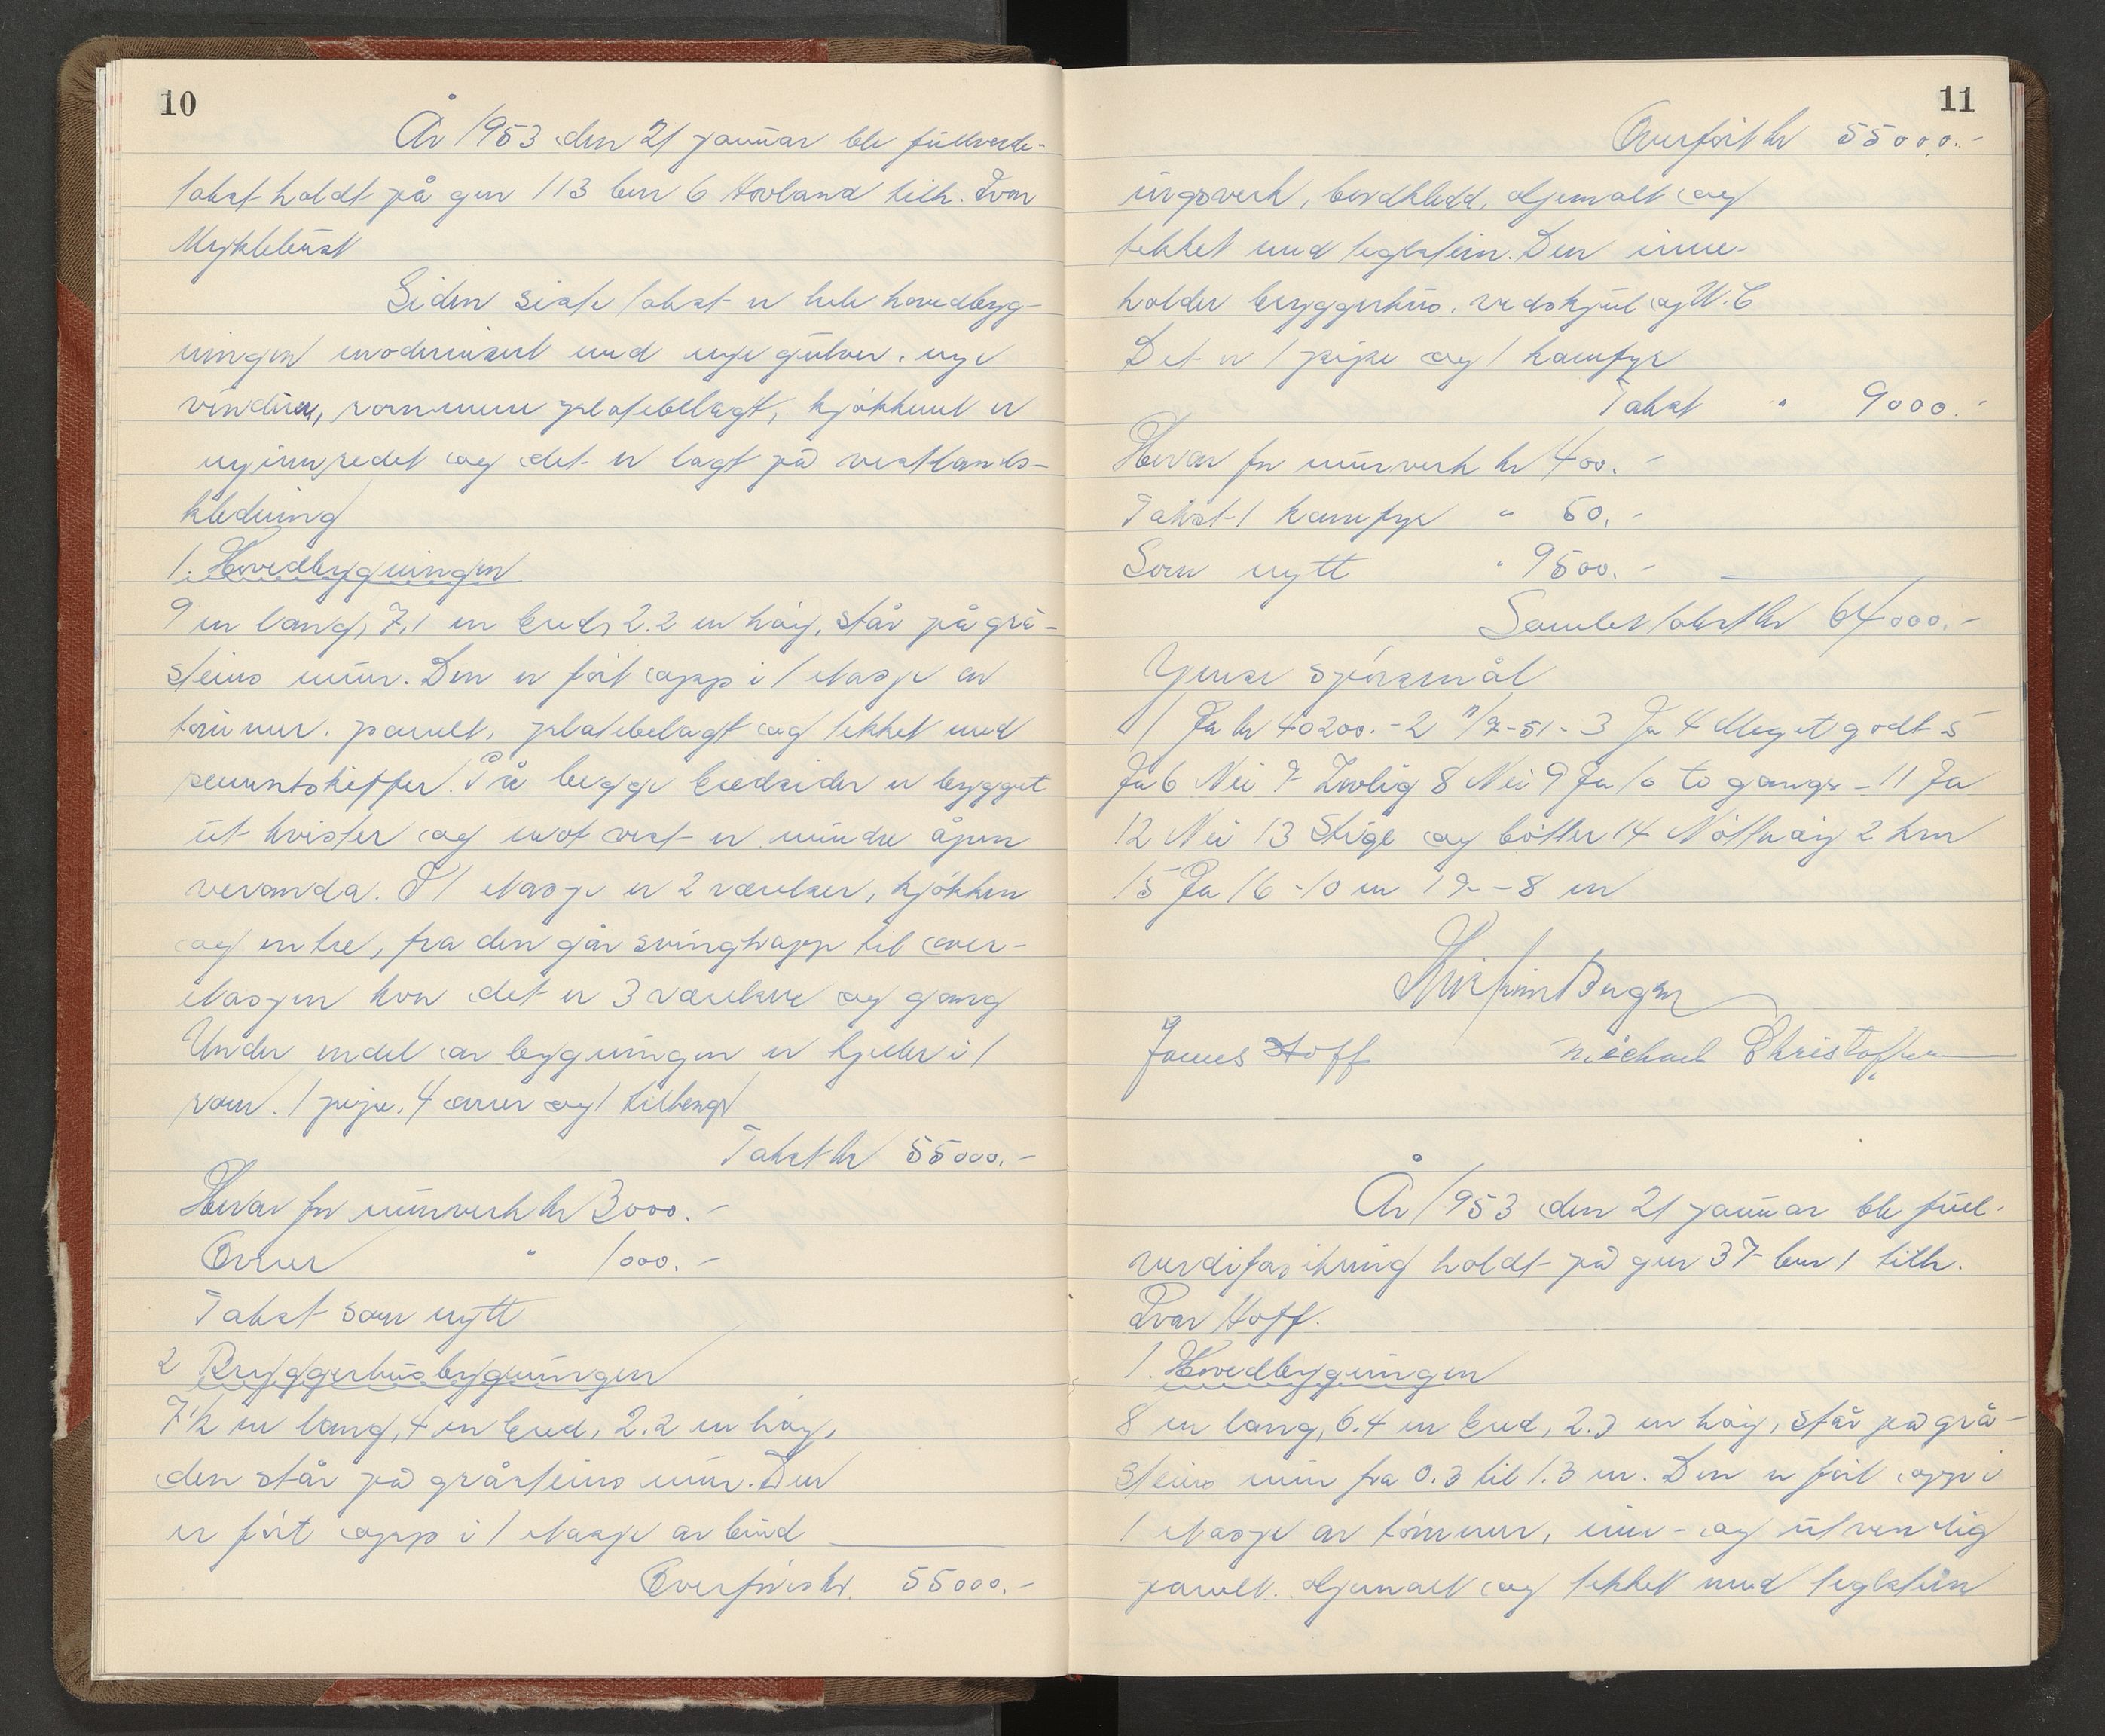 10
År 1953 den 21 januar ble fullverdi-
takst holdt på gnr 113 bnr 6 Hovland tilh. Ivar
Myklebust
Siden siste takst er hele hovedbyg-
ningen modernisert med nye gulver, nye
vinduer, rommene platebelagt, kjøkkenet er
nyinnredet og det er lagt på vestlands-
kledning
1. Hovedbygningen
9 m lang, 7,1 m bred, 2.2 m høig, står på grå-
steins mur. Den er ført opp i 1 etasje av
tømmer, panelt, platebelagt og tekket med
sementskiffer. På begge bredsider er bygget
ut kvister og mot vest er mindre åpen
veranda. I 1 etasje er 2 værelser, kjøkken
og entre, fra den går svingtrapp til over-
etasjen hvor det er 3 værelser og gang
Under endel av bygningen er kjeller i 1
rom. 1 pipe, 4 ovner og 1 tilhengt
Takst kr 55000.-
Herav for murverk kr 3000.-
Ovner " 1000.-
Takst som nytt
2 Bryggerhusbygningen
7 1/2 m lang, 4 m bred, 2.2 m høig,
den står på gråsteins mur. Den
er ført opp i 1 etasje av bind
Overføres kr. 55000.-
11
Overført kr 55000.-
ingsverk, bordkledd, oljemalt og
tekket med teglstein. Den inne-
holder bryggerhus, vedskjul og W.C
Det er 1 pipe og 1 komfyr
Takst " 9000.-
Herav for murverk kr 400.-
Takst 1 komfyr " 50.-
Som nytt " 9500.-
Samlet takst kr 64000.-
Ymse spørsmål
1 Ja kr 40200.- 2 11/7-51 - 3 Ja 4 Meget godt 5
Ja 6 Nei 7 Lovlig 8 Nei 9 Ja 10 to gange - 11 Ja
12 Nei 13 Stige og bøtter 14 Nøttveig 2 km
15 Ja 16 - 10 m 17 - 8 m
Berger
James Hoff Michael Christoffersen
År 1953 den 21 januar ble full-
verdifasikring holdt på gnr 37 bnr 1 tilh.
Ivar Hoff.
1. Hovedbygningen
8 m lang, 6.4 m bred, 2.3 m høig, står på grå-
steins mur fra 0.3 til 1.3 m. Den er ført opp i
1 etasje av tømmer, inn- og utvendig
panelt. oljemalt og tekket med teglstein